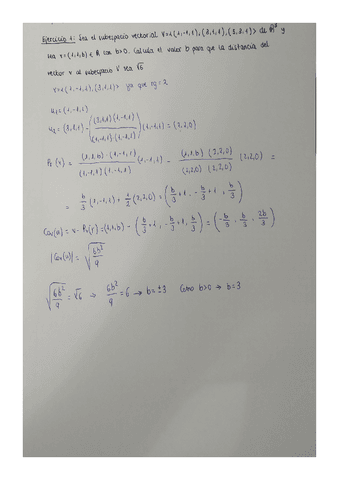 Ejercicio 1: Sea el subespacio vectorial V=<(1,-1,1),(2,1,1),(3,3,1)> de R³ y
sea v=(1,1,b) ∈ R con b>0. Calcula el valor b para que la distancia del
vector v al subespacio V sea √6
V=<(1,-1,1),(3,1,1)> ya que rg=2
u₁=(1,-1,1)
u₂=(3,1,1)-((3,1,1)(1,-1,1)/(1,-1,1)(1,-1,1))(1,-1,1)=(2,2,0)
Pv(v)= (1,1,b)·(1,-1,1)/(1,-1,1)(1,-1,1) (1,-1,1) - (1,1,b)(2,2,0)/(2,2,0)(2,2,0) (2,2,0) =
= b/3 (1,-1,1) + 1/2 (2,2,0) = (b/3+1, -b/3+1, b/3)
v-Pv(v)=(1,1,b)-(b/3+1, -b/3+1, b/3)=(-b/3, b/3, 2b/3)
= √(6b²/9)
√(6b²/9)=√6 → 6b²/9=6 → b=±3 Como b>0 → b=3